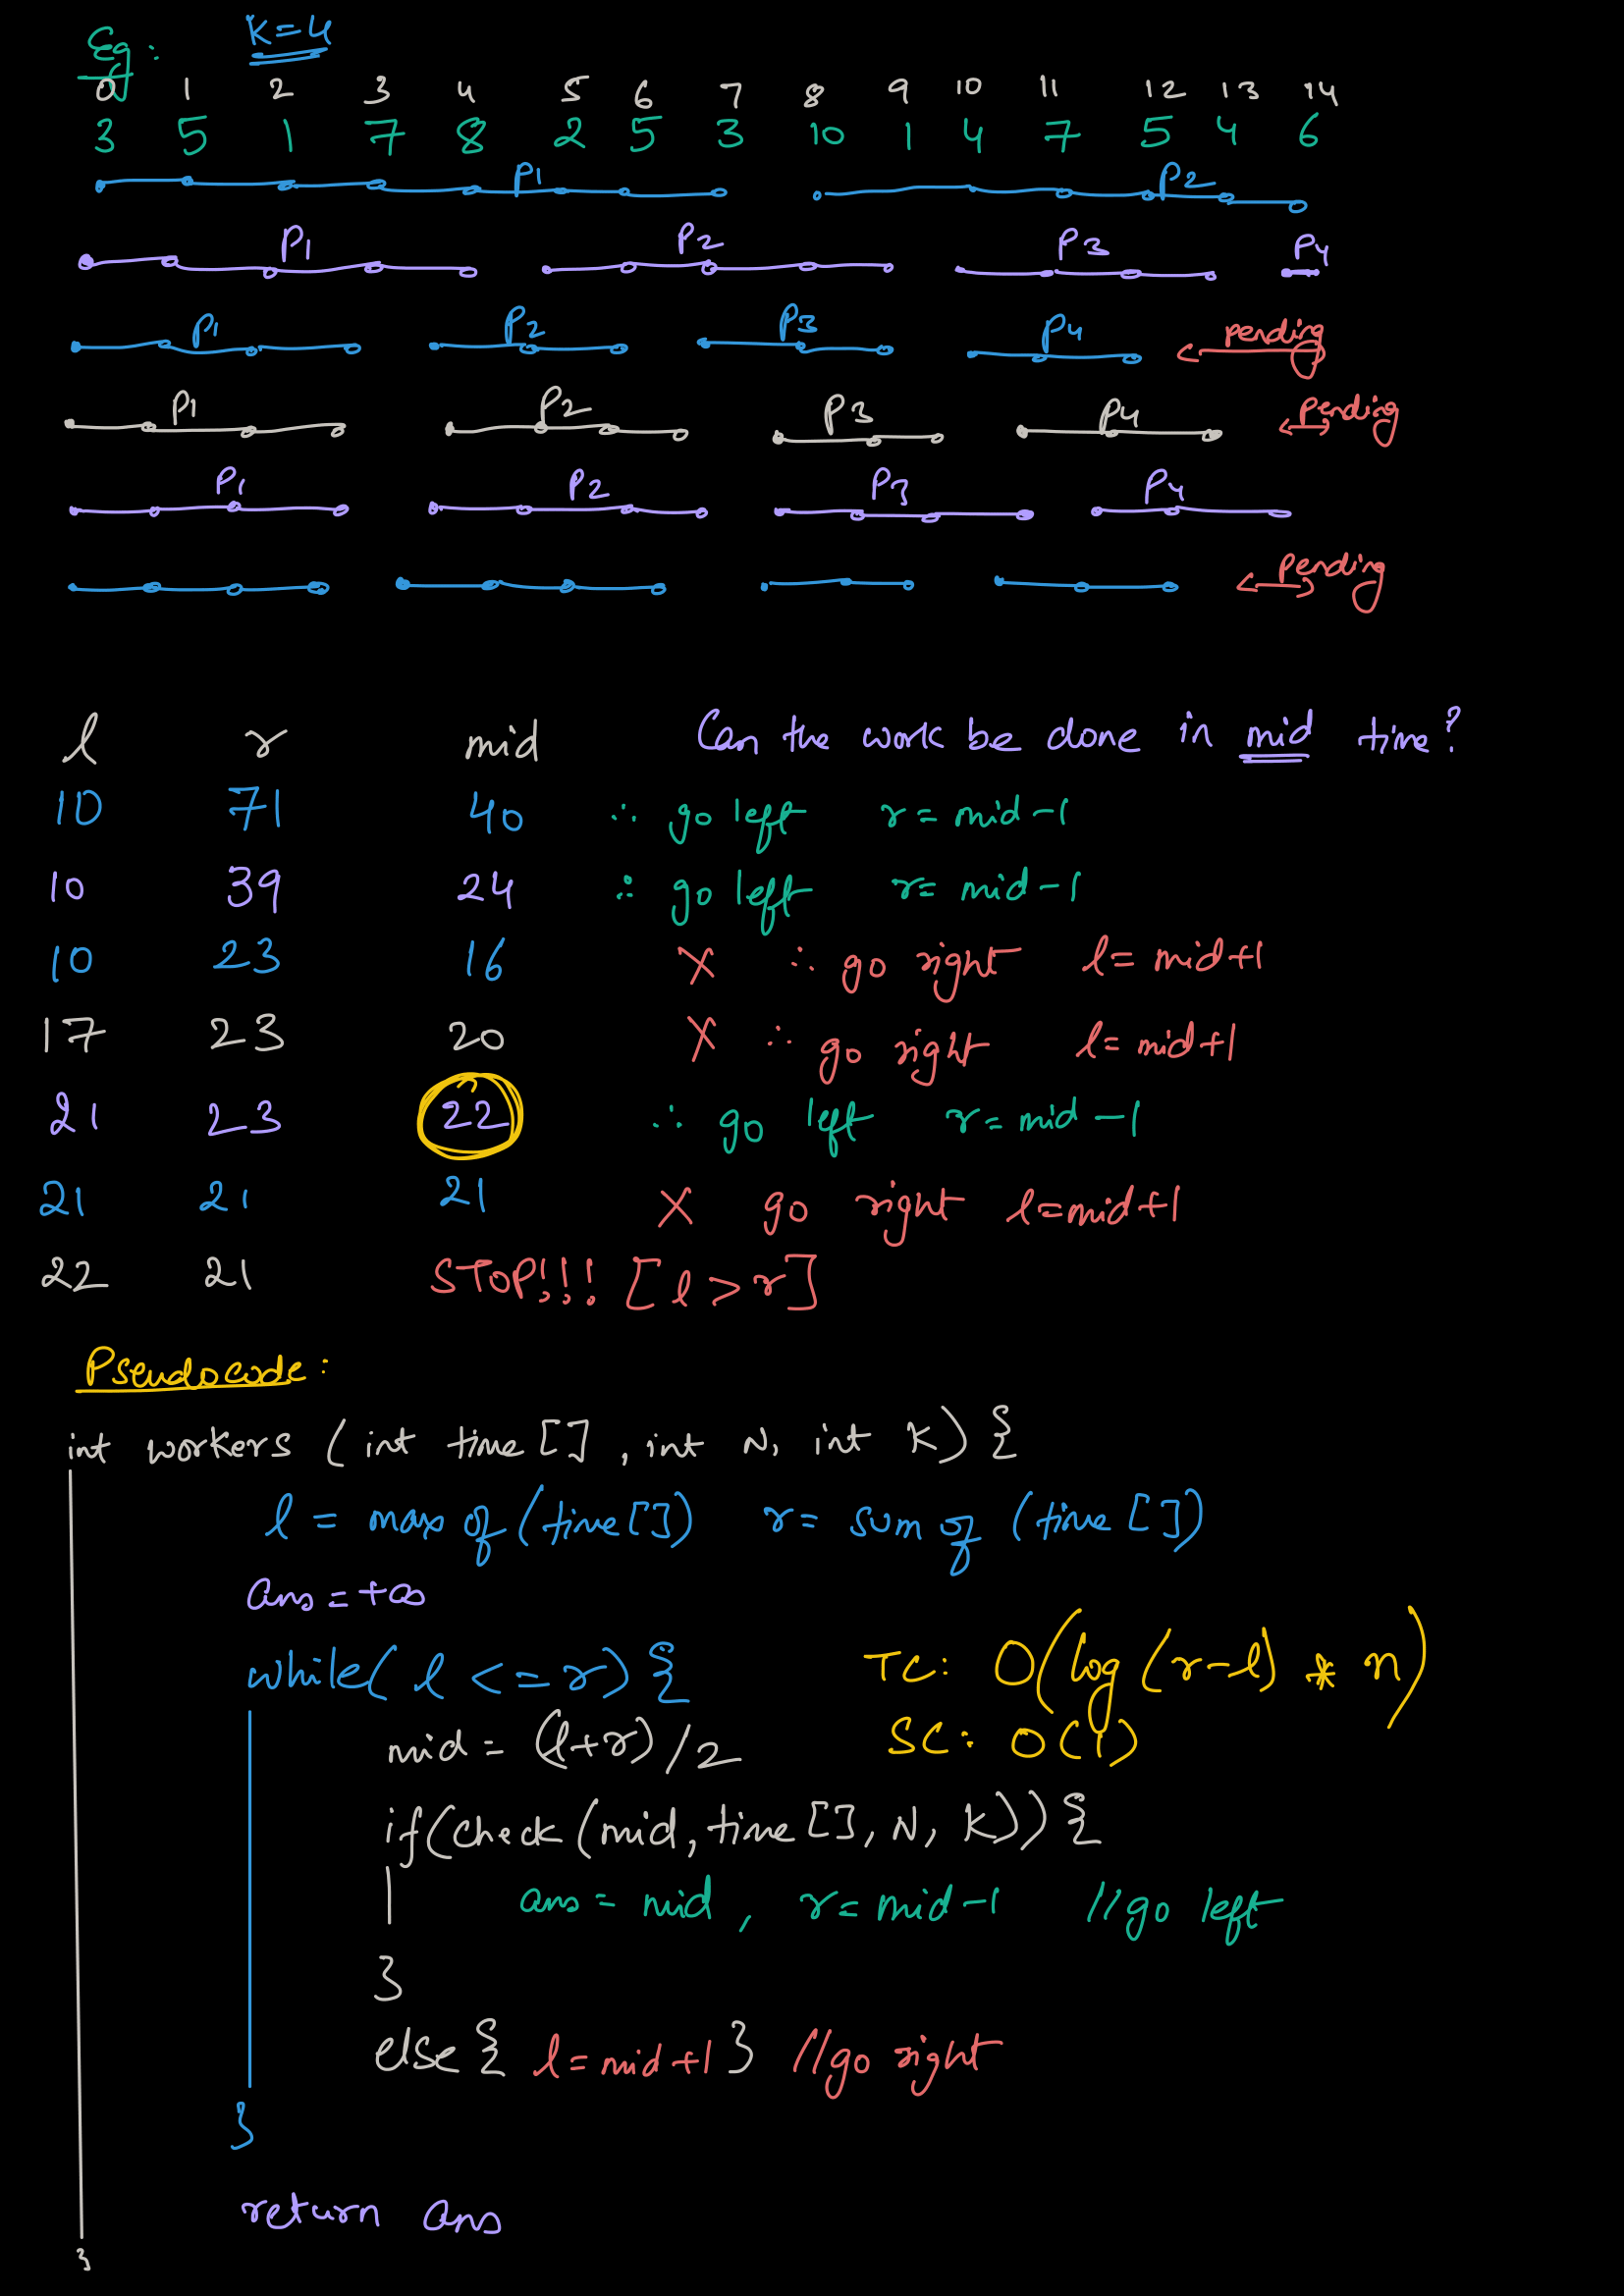 Eg: K=4
0 1 2 3 4 5 6 7 8 9 10 11 12 13 14
3 5 1 7 8 2 5 3 10 1 4 7 5 4 6
P1 P2
P1 P2 P3 P4
P1 P2 P3 P4 pending
P1 P2 P3 P4 pending
P1 P2 P3 P4
pending
l r mid Can the work be done in mid time?
10 71 40 ∴ go left r = mid-1
10 39 24 ∴ go left r= mid-1
10 23 16 X ∴ go right l= mid+1
17 23 20 X ∴ go right l= mid+1
21 23 22 ∴ go left r= mid-1
21 21 21 X go right l=mid+1
22 21 STOP!!! [l>r]
Pseudocode:
int workers (int time[], int N, int K) {
l = max of (time[]) r= sum of (time[])
ans=+∞
while( l <= r) {
TC: O(log(r-l) * n)
mid = (l+r)/2
SC: O(1)
if(check(mid, time[], N, K)) {
ans = mid, r= mid-1 //go left
}
else { l=mid+1 } //go right
}
return ans
}